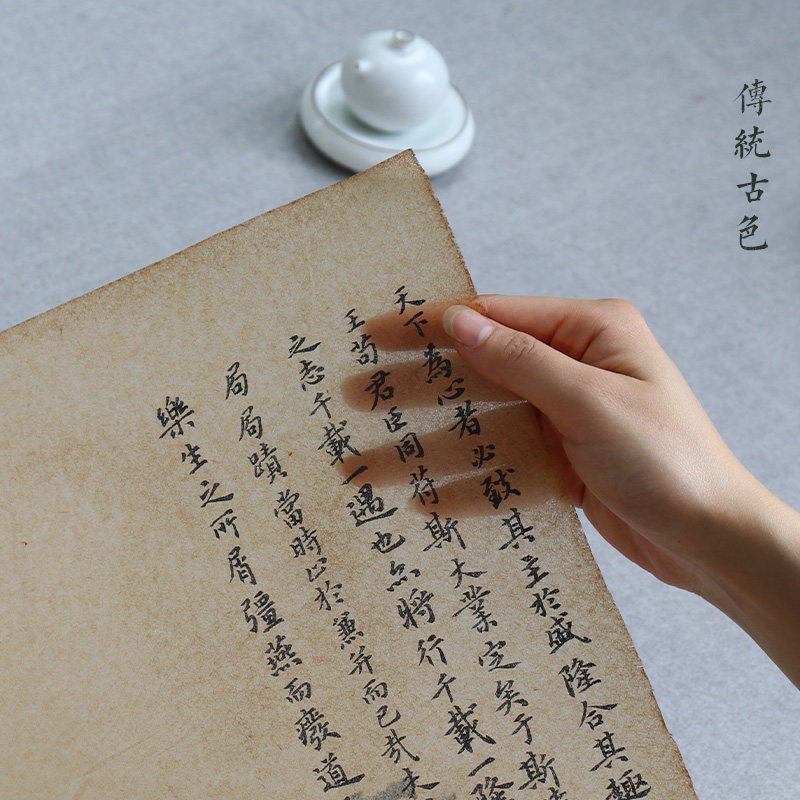 傳統古色
天下為心者必致其主於盛隆合其趣
王苟君臣同符斯大業定矣于斯
之志千載一遇也亦將行千載一隆
局局蹟當時止於兼并而已哉夫
樂生之所屑彊燕而廢道